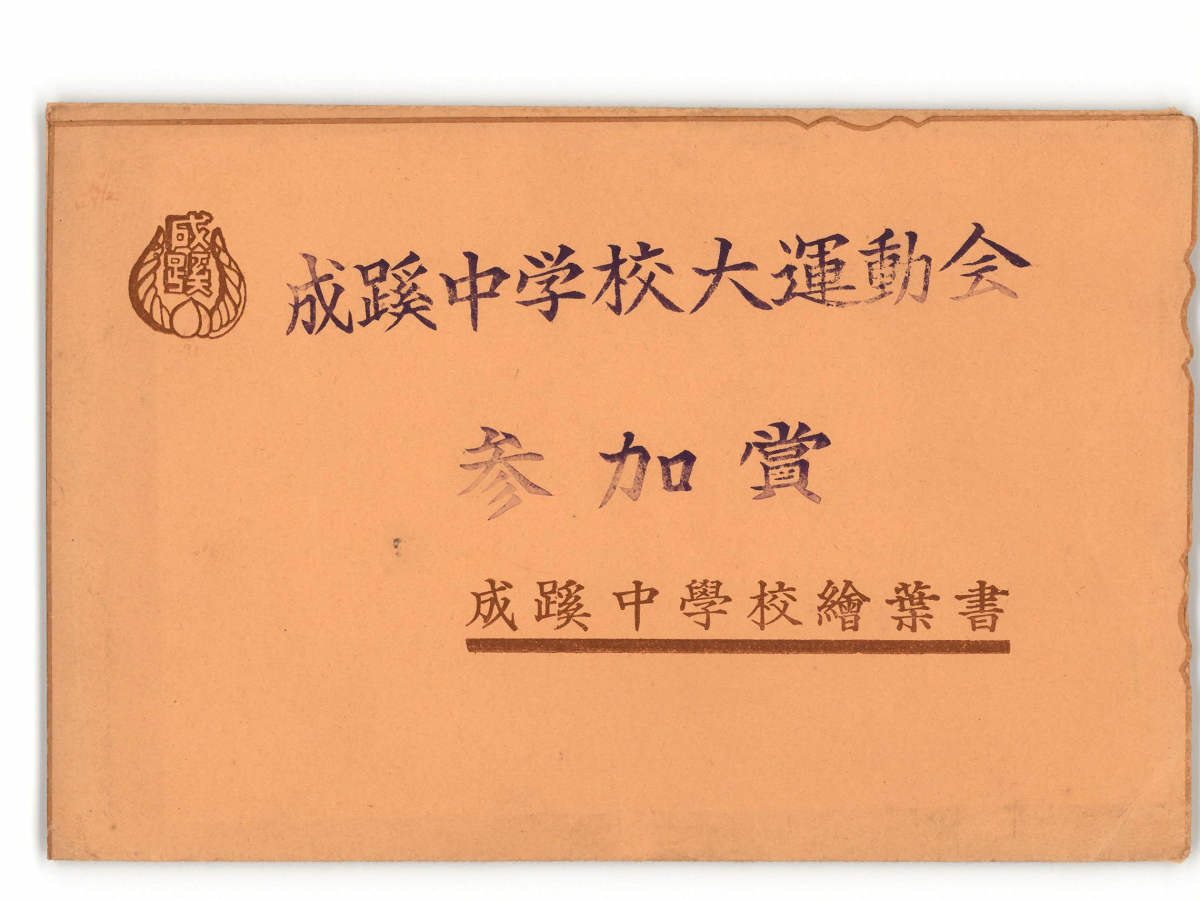 成蹊
成蹊中学校大運動会
参加賞
成蹊中學校繪葉書